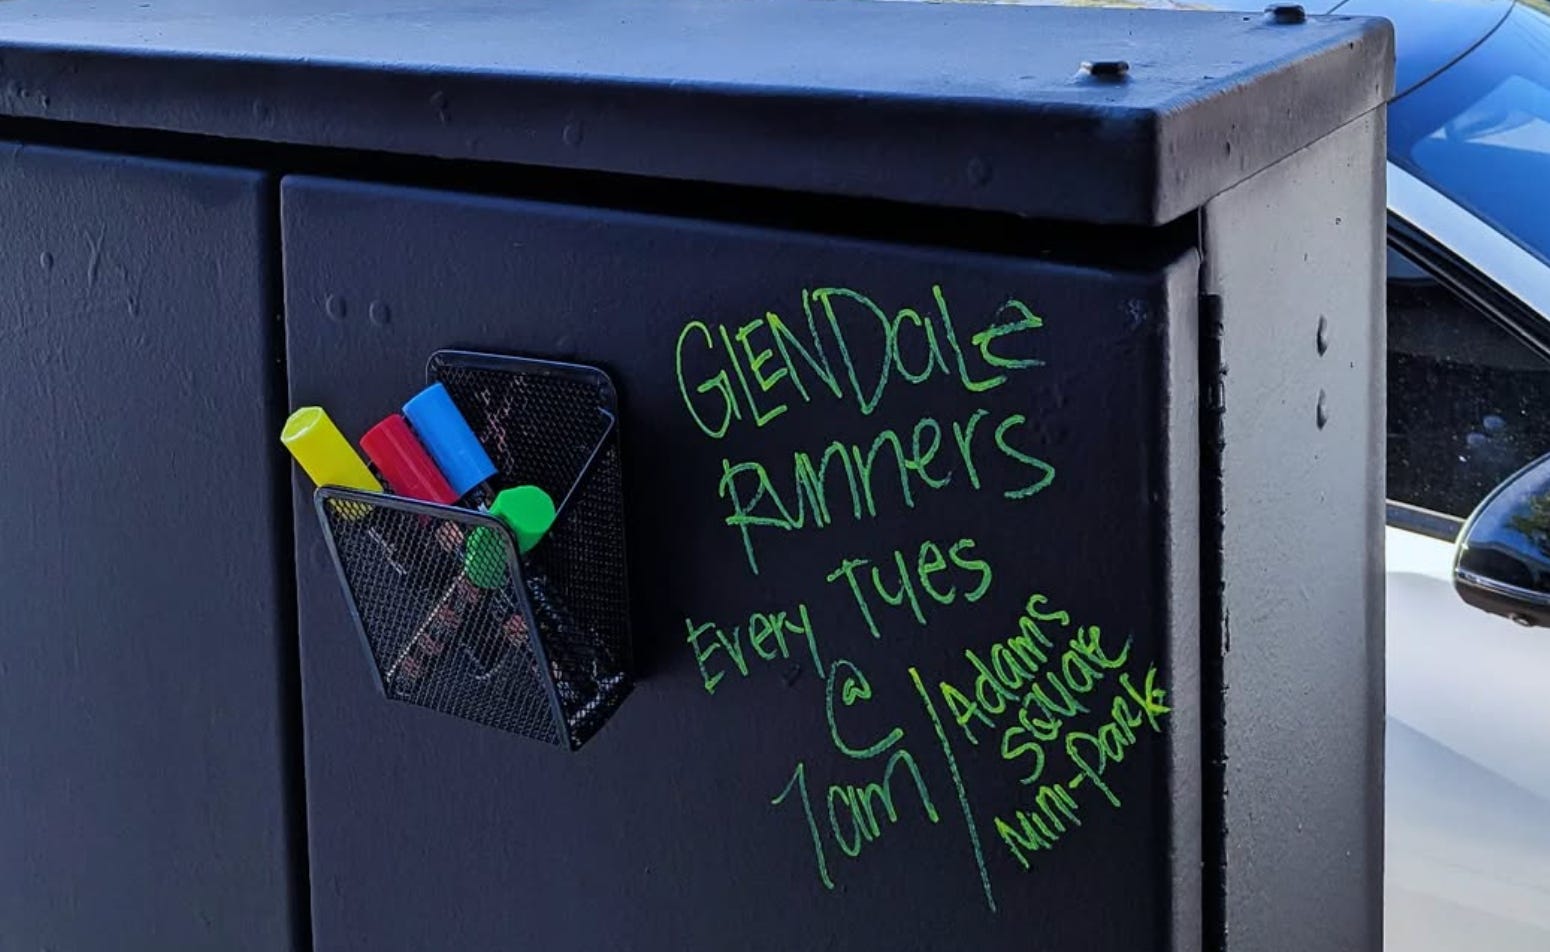 GLENDale
Runners
Every Tues
@
7am / Adams
Square
Mini-Park